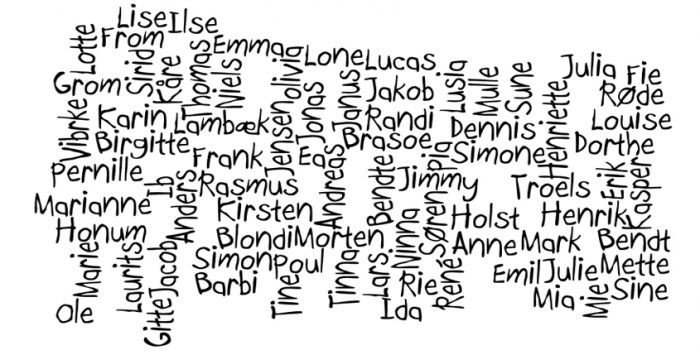 Lise
Ilse
Lotte
From
Sirid
Kåre
Thomas
Emma
Niels
olivia
Lone
Lucas
Grom
Janus
Jakob
Lusia
Mulle
Sune
Julia
Fie
Røde
Vibrke
Karin
Lambæk
Jensen
Jonas
Randi
Dennis
Henriette
Louise
Birgitte
Frank
Eas
Brasoe
Pia
Simone
Dorthe
Pernille
Ib
Anders
Rasmus
Andreas
Bendte
Jimmy
Troels
Erik
Kasper
Marianne
Kirsten
Søren
Holst
Henrik
Honum
Blondi
Morten
Ninna
Anne
Mark
Bendt
Marie
Laurits
Jacob
Simon
Poul
Tinna
Lars
René
Emil
Julie
Mette
Gitte
Barbi
Tine
Rie
Mia
Mie
Sine
Ole
Ida